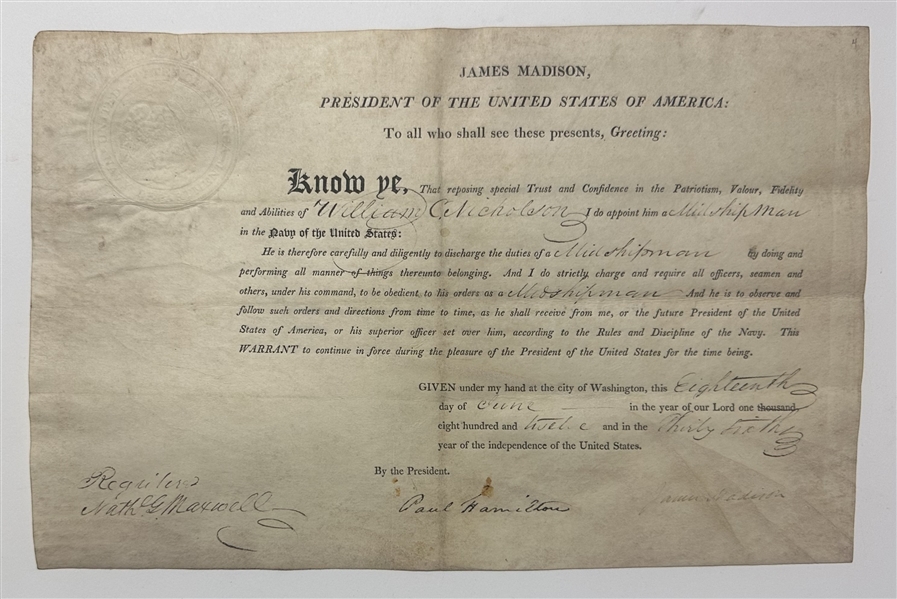 JAMES MADISON,
PRESIDENT OF THE UNITED STATES OF AMERICA:
To all who shall see these presents, Greeting:
Know ye, That reposing special Trust and Confidence in the Patriotism, Valour, Fidelity
and Abilities of William C Nicholson I do appoint him a Midshipman
in the Navy of the United States:
He is therefore carefully and diligently to discharge the duties of a Midshipman By doing and
performing all manner of things thereunto belonging. And I do strictly charge and require all officers, seamen and
others, under his command, to be obedient to his orders as a Midshipman And he is to observe and
follow such orders and directions from time to time, as he shall receive from me, or the future President of the United
States of America, or his superior officer set over him, according to the Rules and Discipline of the Navy. This
WARRANT to continue in force during the pleasure of the President of the United States for the time being.
GIVEN under my hand at the city of Washington, this Eighteenth
day of June in the year of our Lord one thousand,
eight hundred and twelve and in the Thirty sixth
year of the independence of the United States.
By the President.
Registered
Nathl G Maxwell
Paul Hamilton
James Madison